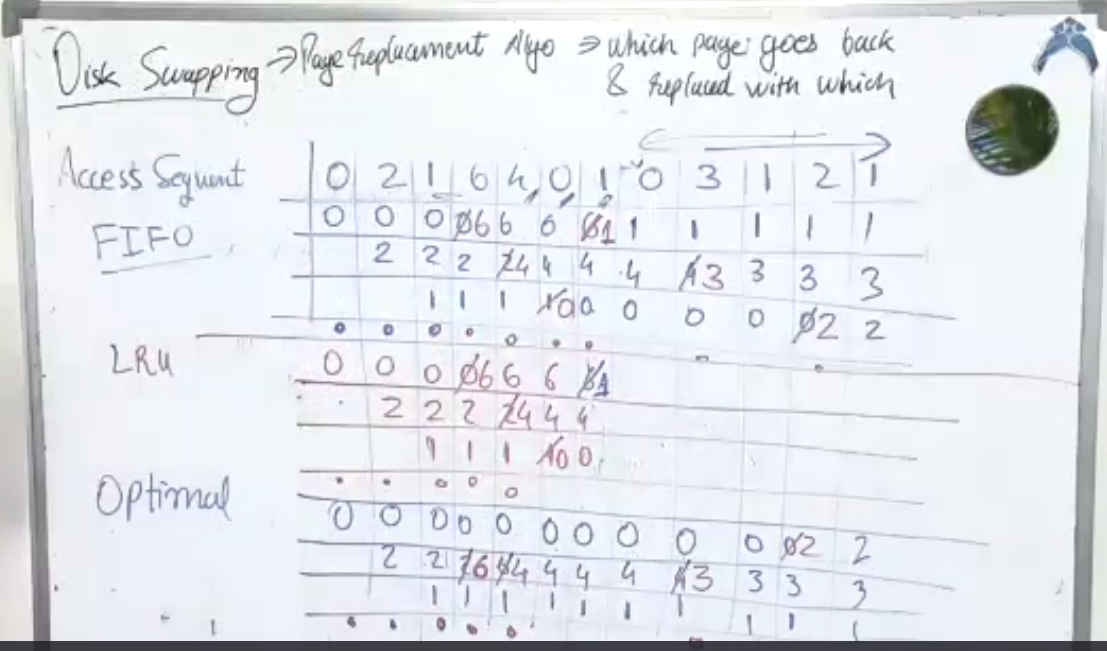 Disk Swapping → Page Replacement Algo ⇒ which page goes back
& replaced with which
Access Sequent 0 2 1 6 4 0 1 0 3 1 2 1
FIFO 0 0 0 0̸6 6 6 6̸1 1 1 1 1 1
2 2 2 2̸4 4 4 4 4̸3 3 3 3
1 1 1 1̸0 0 0 0 0 0̸2 2
LRU 0 0 0 0̸6 6 6 6̸1
2 2 2 2̸4 4 4
1 1 1 1̸0 0
Optimal 0 0 0 0 0 0 0 0 0 0 0̸2 2
2 2 2̸6 6̸4 4 4 4 4̸3 3 3 3
1 1 1 1 1 1 1 1 1 1